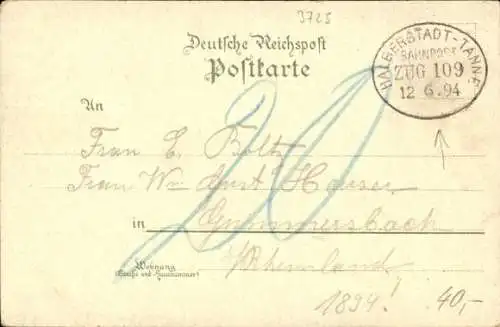 3725
Deutsche Reichspost
Postkarte
HALBERSTADT-TANNE
BAHNPOST
ZUG 109
12 6.94
An
Frau E. Boltz
Frau Wm Aust Hauser
20
in Gummersbach
Wohnung
(Straße und Hausnummer)
Rheinland
1894!
40,-